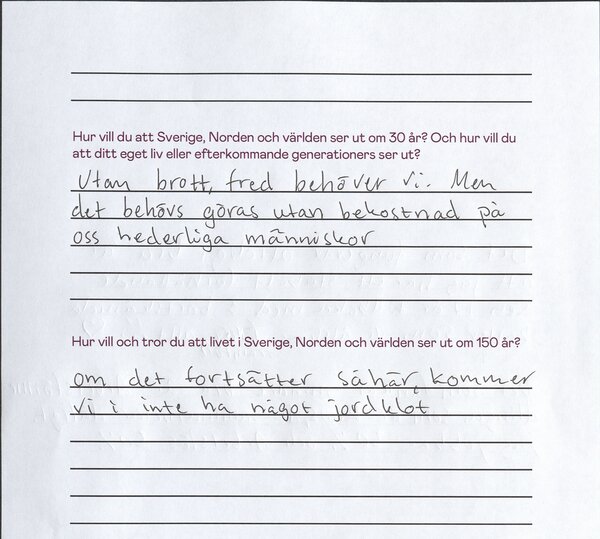 Hur vill du att Sverige, Norden och världen ser ut om 30 år? Och hur vill du
att ditt eget liv eller efterkommande generationers ser ut?
Utan brott, fred behöver vi. Men
det behövs göras utan bekostnad på
oss hederliga människor
Hur vill och tror du att livet i Sverige, Norden och världen ser ut om 150 år?
om det fortsätter såhär, kommer
vi i inte ha något jordklot